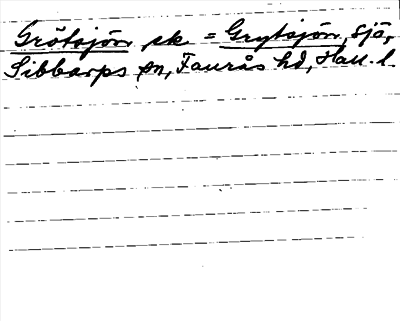 Grötsjön sk = Grytsjön, sjö,
Sibbarps sn, Faurås hd, Hall. l.